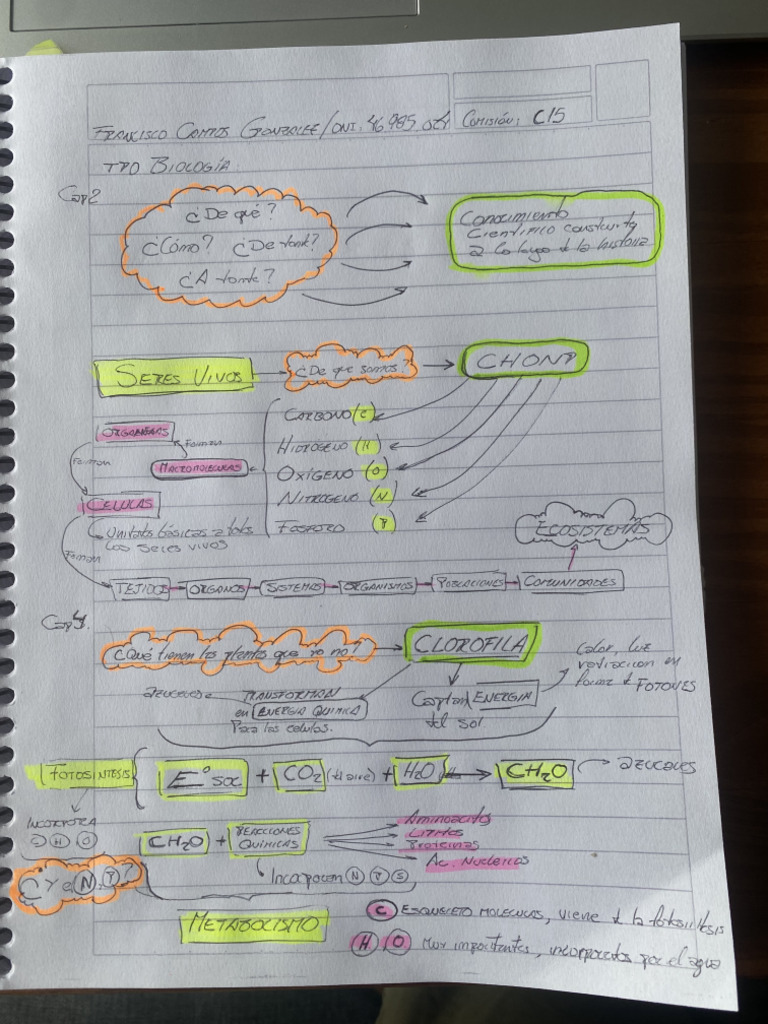 FRANCISCO GONZALEZ/DNI: 46.985.024 COMISIÓN: C15
TPO BIOLOGÍA.
Cap 2
¿De qué?
¿Cómo? ¿De donde?
¿A donde?
Conocimiento
Científico construido
a lo largo de la historia
SERES VIVOS
¿De que somos?
CHONP
CARBONO (C)
HIDRÓGENO (H)
OXÍGENO (O)
NITROGENO (N)
FOSFORO (P)
MACROMOLECULAS
Forman
ORGANELAS
Forman
CELULAS
Unidades básicas a todos
los seres vivos
Forman
TEJIDOS ORGANOS SISTEMAS ORGANISMOS POBLACIONES COMUNIDADES
ECOSISTEMAS
Cap 4.
¿Qué tienen las plantas que yo no?
CLOROFILA
azucares TRANSFORMAN
en ENERGIA QUIMICA
Para las celulas.
Captan ENERGIA
del sol
Calor, luz
radiacion en
forma de FOTONES
FOTOSINTESIS
E° SOL + CO2 (del aire) + H2O CH2O azucares
INCORPORA
C H O
CH2O + REACCIONES
QUIMICAS
Aminoacidos
Lipidos
Proteinas
Ac. Nucleicos
Incorporan N P S
¿Y el N, P?
METABOLISMO
C ESQUELETO MOLECULAS, viene de la fotosintesis
H O Muy importantes, incorporados por el agua